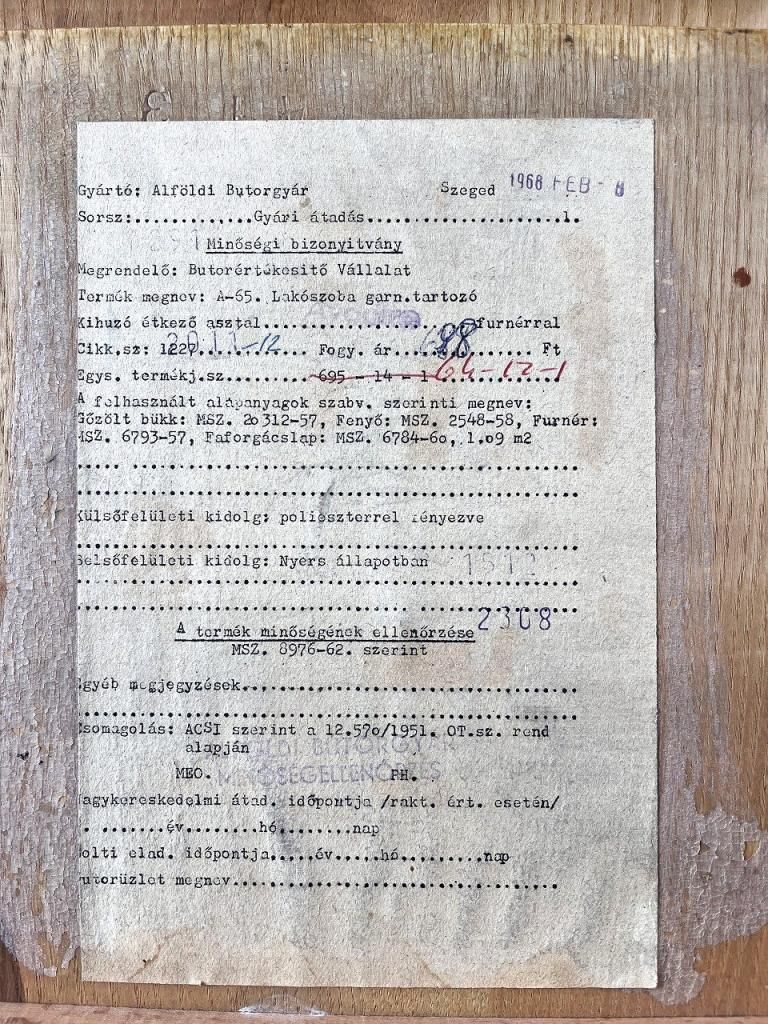 Gyártó: Alföldi Butorgyár Szeged 1968 FEB - 8
Sorsz:............Gyári átadás.....................1.
Minőségi bizonyitvány
Megrendelő: Butorértékesitő Vállalat
Termék megnev: A-65. Lakószoba garn.tartozó
Kihuzó étkező asztal.................furnérral
Cikk.sz: 1227............ Fogy. ár................ Ft
Egys. termékj.sz......... 695 -14 - 1 64-12-1
A felhasznált alapanyagok szabv. szerinti megnev:
Gőzölt bükk: MSZ. 2o312-57, Fenyő: MSZ. 2548-58, Furnér:
MSZ. 6793-57, Faforgácslap: MSZ. 6784-6o, 1.o9 m2
Külsőfelületi kidolg: polieszterrel fényezve
Belsőfelületi kidolg: Nyers állapotban 1512
2308
A termék minőségének ellenőrzése
MSZ. 8976-62. szerint
Egyéb megjegyzések...............................
Csomagolás: ACSI szerint a 12.57o/1951. OT.sz. rend
alapján
ALFÖLDI BUTORGYÁR
MEO. PH.
MINŐSÉGELLENŐRZÉS
Nagykereskedelmi átad. időpontja /rakt. ért. esetén/
. .......év........hó........nap
Bolti elad. időpontja.....év.....hó.........nap
Butorüzlet megnev...............................